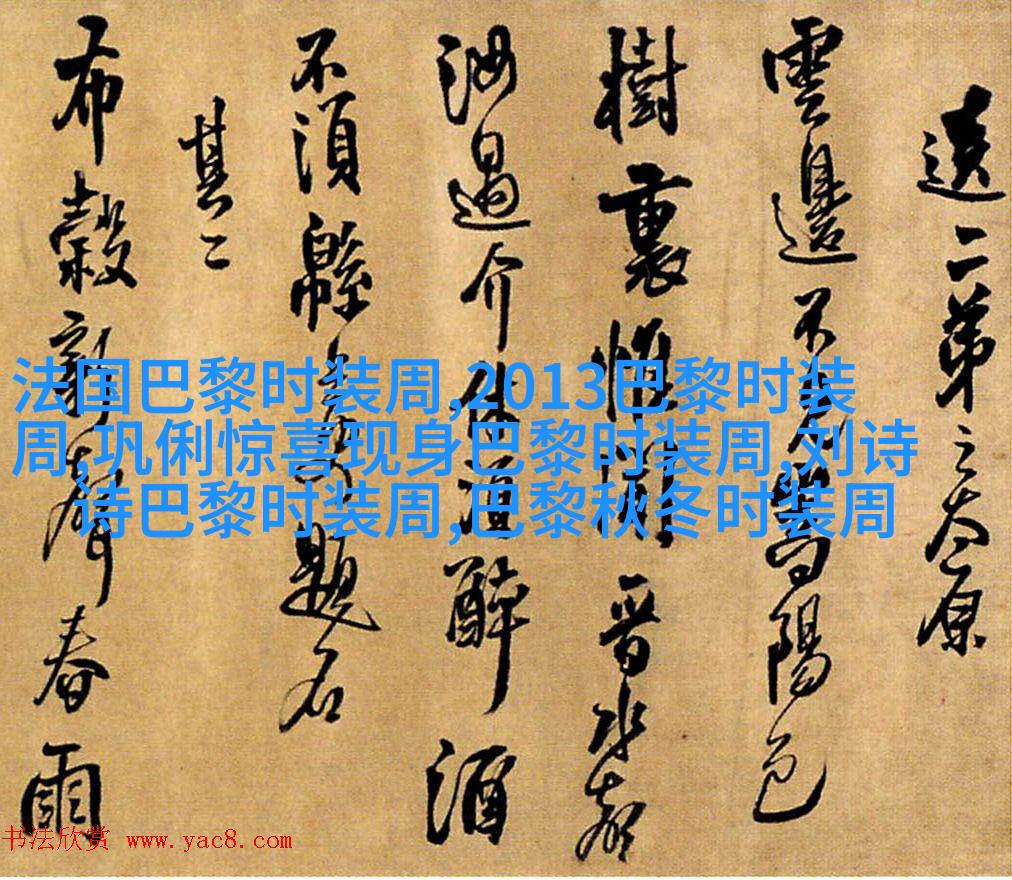 送二弟之太原
雲邊不陽
樹裏惟晉水
汝過介休酒醉酒
不須綿題名
其二
布穀新聲春雨
法国巴黎时装周,2013巴黎时装
周,巩俐惊喜现身巴黎时装周,刘诗
诗巴黎时装周,巴黎秋冬时装周
书法欣赏 www.yac8.com